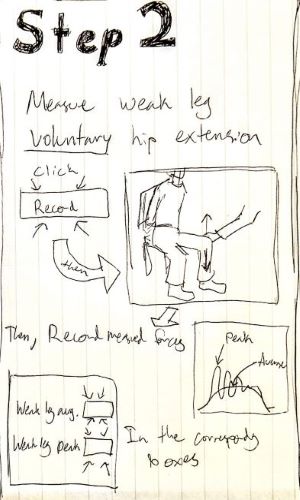 Step 2
Measure weak leg
voluntary hip extension
click
Record
then
Then, Record measured forces
peak
Average
Weak leg avg.
Weak leg peak
In the
boxes